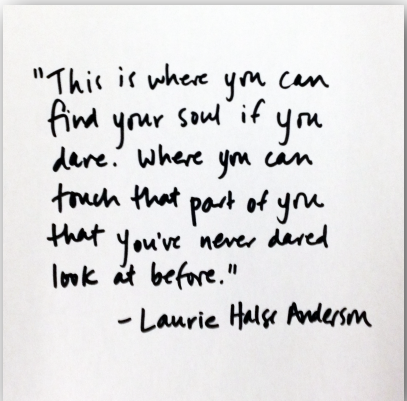 "This is where you can
find your soul if you
dare. Where you can
touch that part of you
that you've never dared
look at before."
- Laurie Halse Anderson